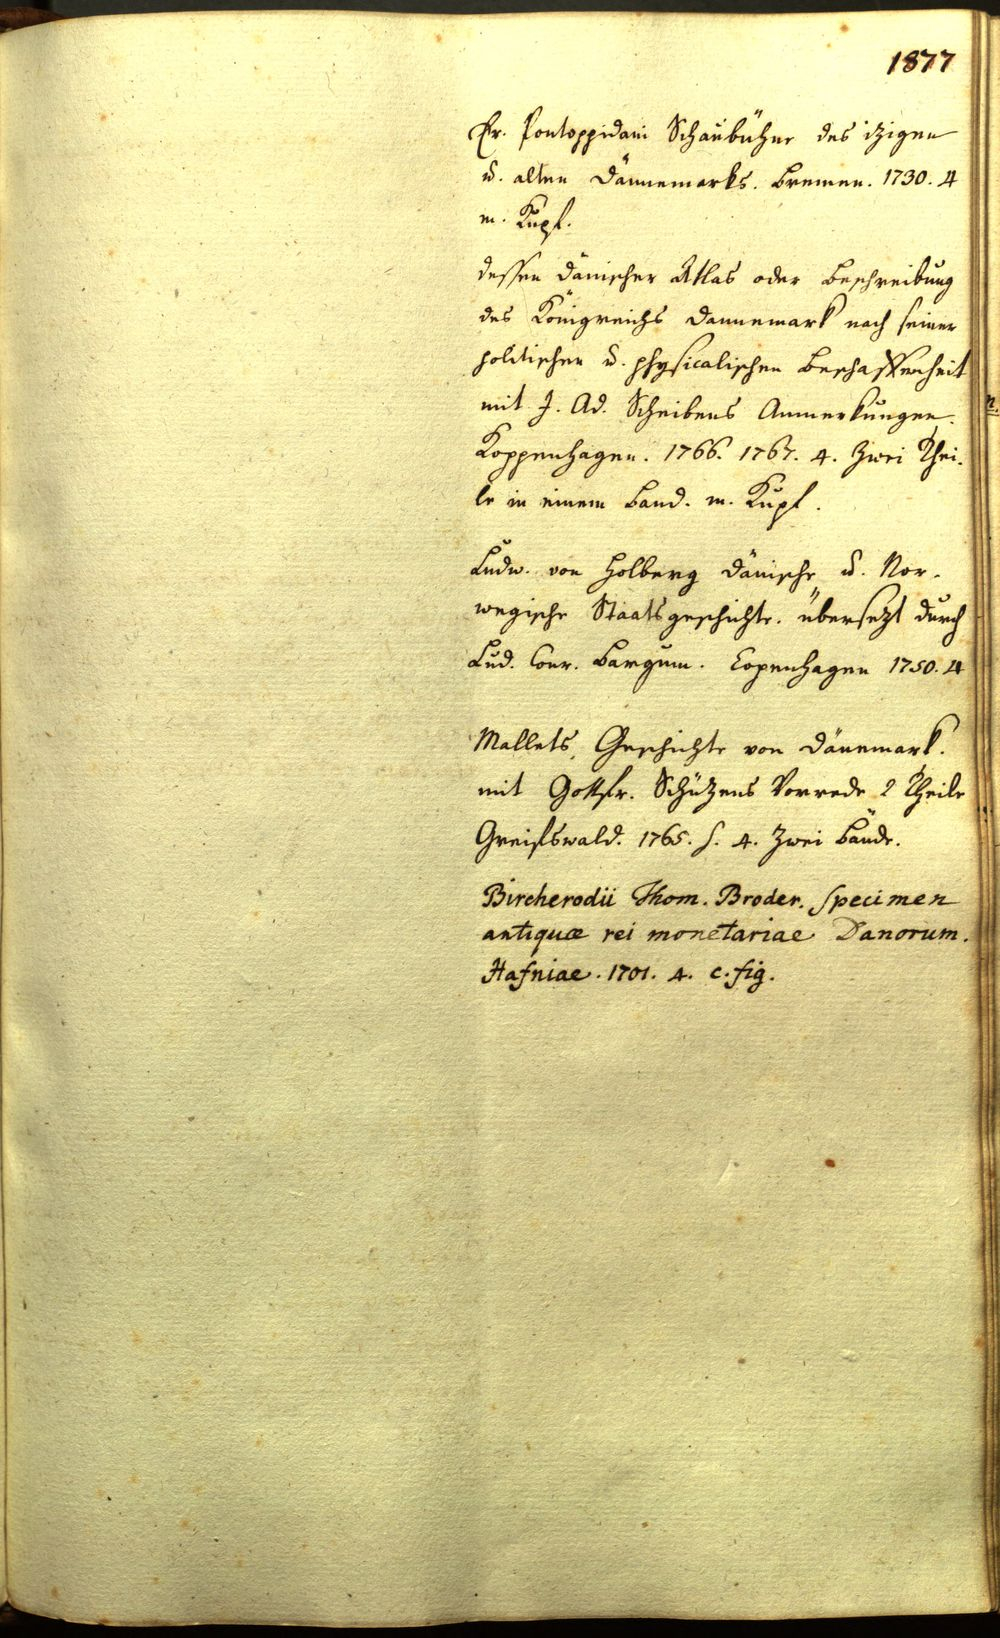 1877
Er. Pontoppidani Schaubühne des izigen
u. alten Dännemarks. Bremen. 1730. 4
m. Kupf.
dessen dänischer Atlas oder Beschreibung
des Königreichs Dannemark nach seiner
politischen u. physicalischen Beschaffenheit
mit J. Ad. Scheibens Anmerkungen.
Koppenhagen. 1766. 1767. 4. Zwei Thei-
le in einem Band. m. Kupf.
Ludw. von Holberg Dänische u. Nor-
wegische Staatsgeschichte. übersezt durch
Lud. Conr. Bargum. Copenhagen 1750. 4
Mallets Geschichte von Dänemark.
mit Gottfr. Schützens Vorrede 2 Theile
Greifswald. 1765. s. 4. Zwei Bände.
Bircherodii Thom. Broder. Specimen
antiquæ rei monetariae Danorum.
Hafniae. 1701. 4. c. fig.